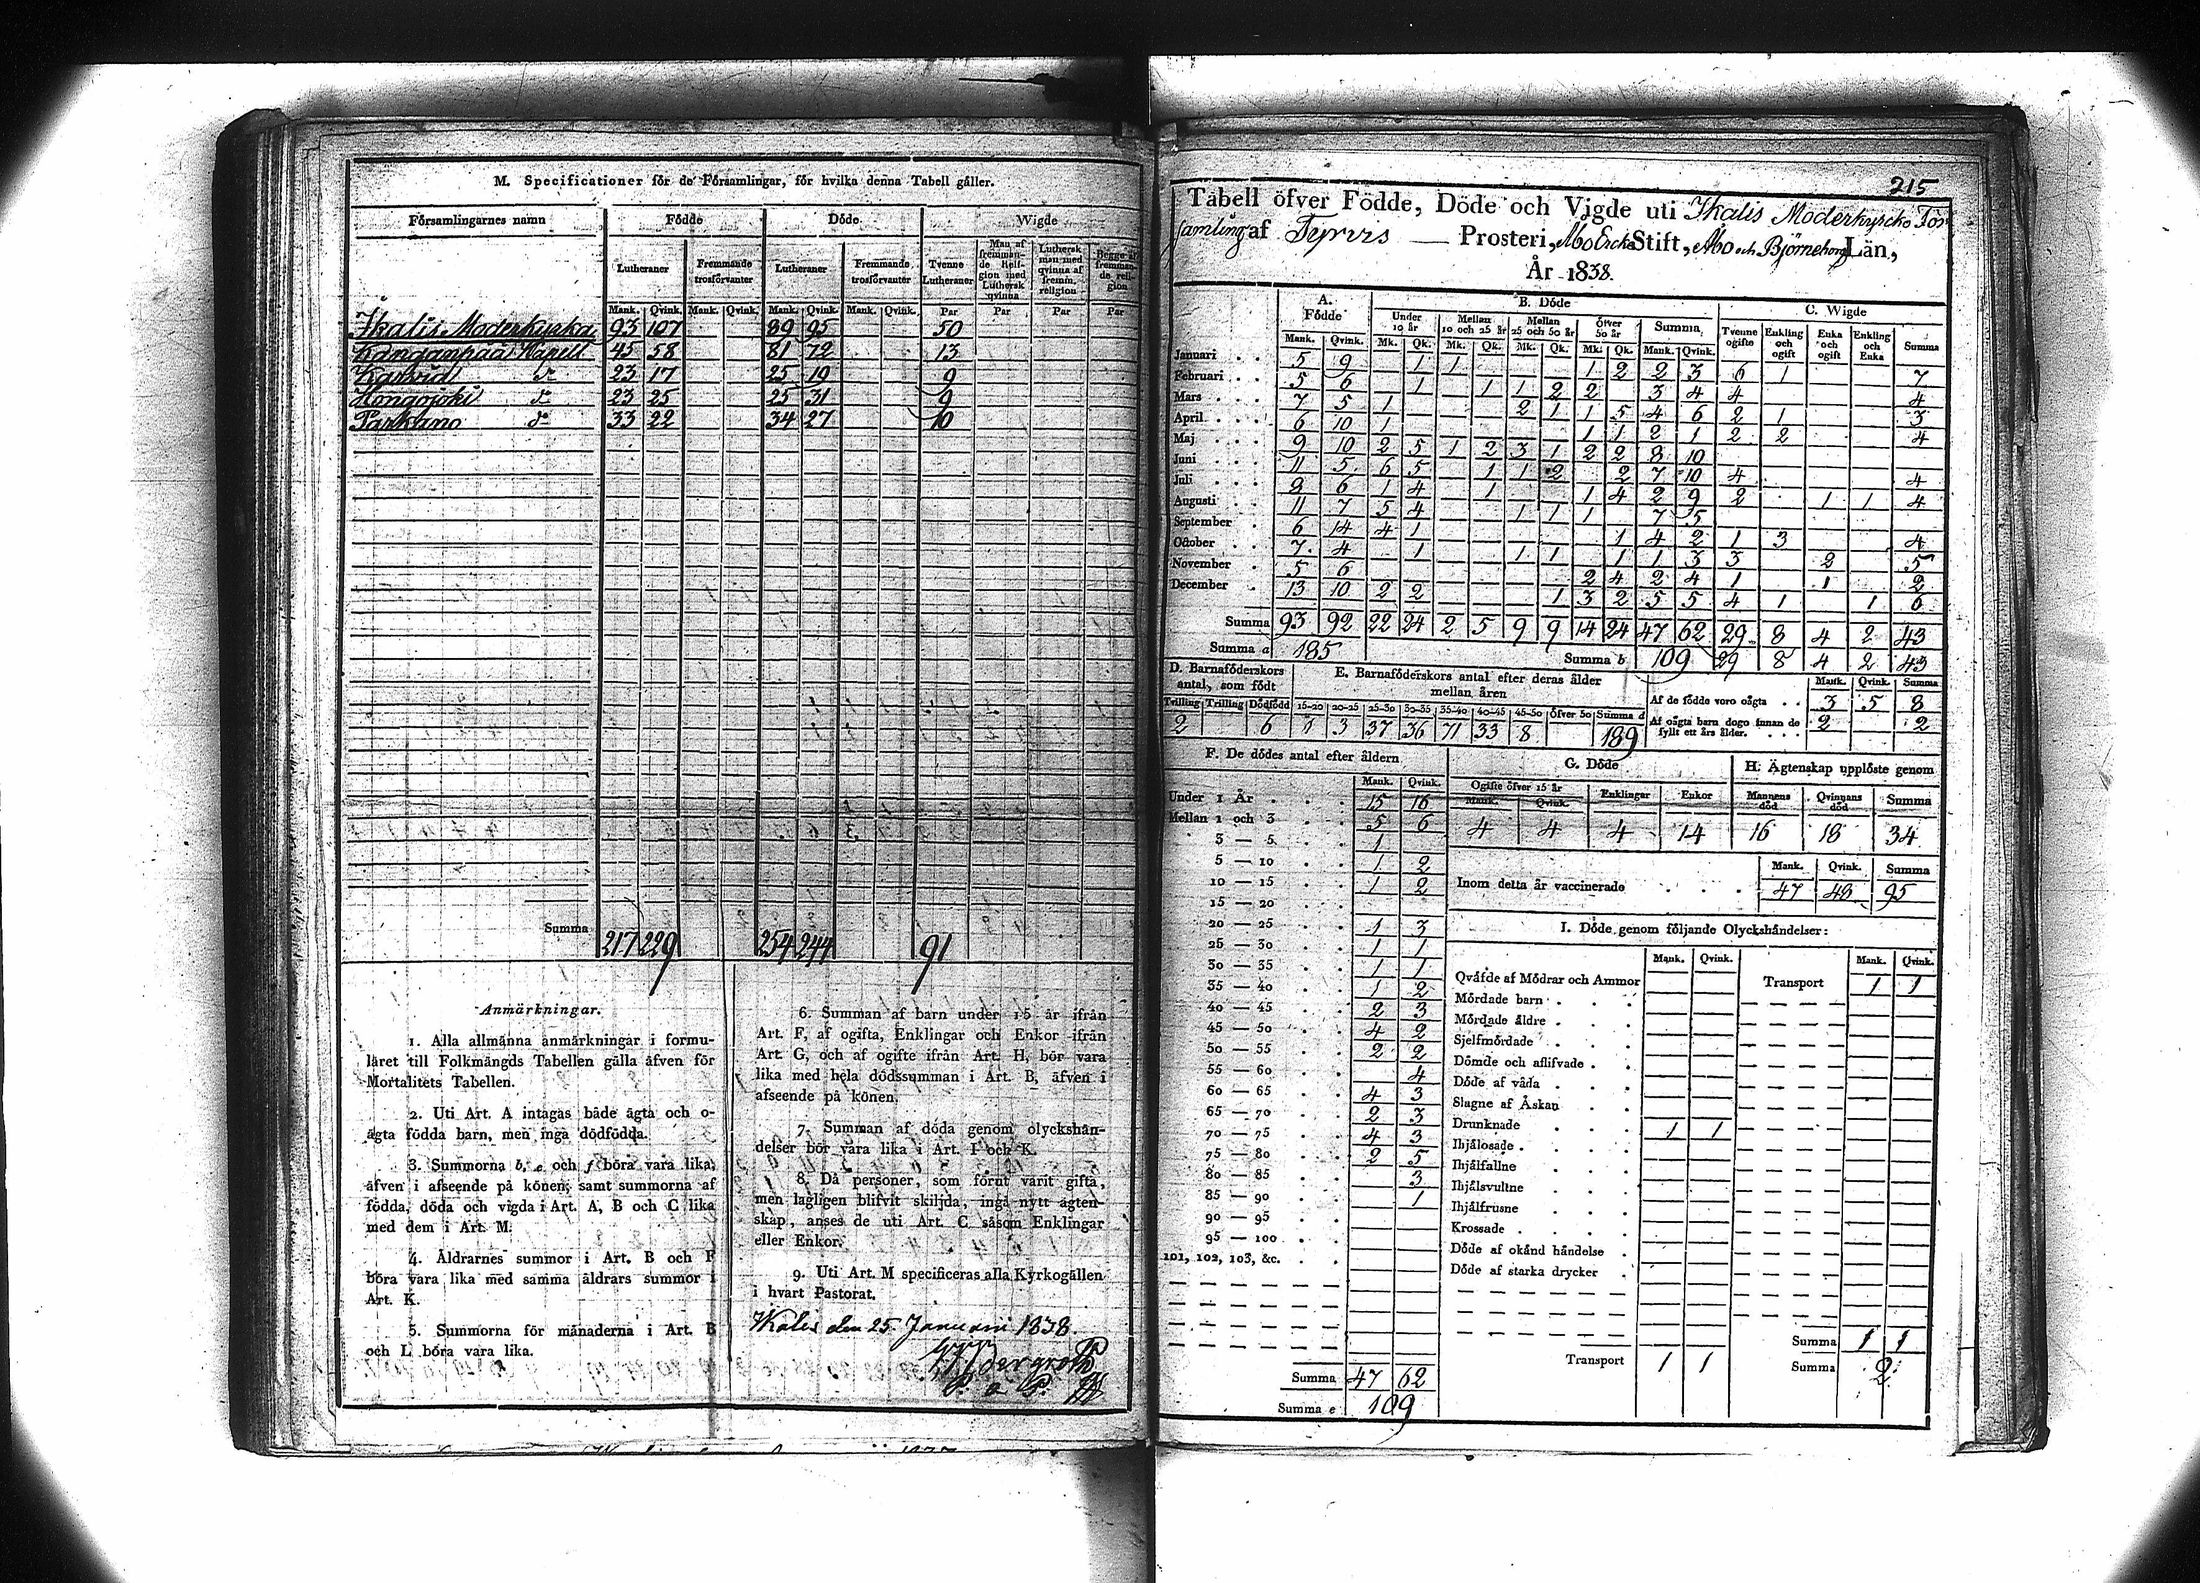 M. Specificationer för de Församlingar, för hvilka denna Tabell gäller.
Församlingarnes namn Födde Döde Wigde
Lutheraner Fremmande trosförvanter Lutheraner Fremmande trosförvanter Tvenne Lutheraner Man af fremmande Religion med Luthersk qvinna Luthersk man med qvinna af fremm. religion Begge af fremmande religion
Mank. Qvink. Mank. Qvink. Mank. Qvink. Mank. Qvink. Par Par Par Par
Ikalis Moderkyrka 93 107 89 95 50
Kanganpää Kapell 45 58 81 72 13
23 17 25 19 9
Hongojoki do 23 25 25 31 9
Parkano do 33 22 34 27 10
Summa 217 229 254 244 91
Anmärkningar.
1. Alla allmänna anmärkningar i formu-
läret till Folkmängds Tabellen gälla äfven för
Mortalitets Tabellen.
2. Uti Art. A intagas både ägta och o-
ägta födda barn, men inga dödfödda.
3. Summorna b, e och f böra vara lika,
äfven i afseende på könen; samt summorna af
födda, döda och vigda i Art. A, B och C lika
med dem i Art. M.
4. Åldrarnes summor i Art. B och F
böra vara lika med samma åldrars summor i
Art. K.
5. Summorna för månaderna i Art. B
och L böra vara lika.
6. Summan af barn under 15 år ifrån
Art. F, af ogifta, Enklingar och Enkor ifrån
Art. G, och af ogifte ifrån Art. H, bör vara
lika med hela dödssumman i Art. B, äfven i
afseende på könen.
7. Summan af döda genom olyckshän-
delser bör vara lika i Art. I och K.
8. Då personer, som förut varit gifta,
men lagligen blifvit skiljda, ingå nytt ägten-
skap, anses de uti Art. C såsom Enklingar
eller Enkor.
9. Uti Art. M specificeras alla Kyrkogällen
i hvart Pastorat.
Ikalis den 25 Januarii 1838.
215
Tabell öfver Födde, Döde och Vigde uti Ikalis Moderkyrcko För
samling af Tyrvis Prosteri, Åbo Ercke Stift, Åbo och Björneborg Län,
År 1838.
A. Födde B. Döde C. Wigde
Under 10 år Mellan 10 och 25 år Mellan 25 och 50 år Öfver 50 år Summa Tvenne ogifte Enkling och ogift Enka och ogift Enkling och Enka Summa
Mank. Qvink. Mk. Qk. Mk. Qk. Mk. Qk. Mk. Qk. Mank. Qvink.
Januari 5 9 1 1 1 2 2 3 6 1 7
Februari 5 6 1 1 1 2 2 3 4 4 4
Mars 7 5 1 2 1 1 5 4 6 2 1 3
April 6 10 1 1 1 2 1 2 2 4
Maj 9 10 2 5 1 2 3 1 2 2 8 10
Juni 11 5 6 5 1 1 2 2 7 10 4 4
Juli 8 6 1 4 1 1 4 2 9 2 1 1 4
Augusti 11 7 5 4 1 1 1 7 5
September 6 14 4 1 1 4 2 1 3 4
October 7 4 1 1 1 1 1 3 3 2 5
November 5 6 2 4 2 4 1 1 2
December 13 10 2 2 1 3 2 5 5 4 1 1 6
Summa 93 92 22 24 2 5 9 9 14 24 47 62 29 8 4 2 43
Summa a 185 Summa b 109 29 8 4 2 43
D. Barnaföderskors antal, som födt E. Barnaföderskors antal efter deras ålder mellan åren Mank. Qvink. Summa
Tvilling Trilling Dödfödd 15-20 20-25 25-30 30-35 35-40 40-45 45-50 Öfver 50 Summa d
Af de födde voro oägta 3 5 8
Af oägta barn dogo innan de fyllt ett års ålder. 2 2
2 6 1 3 37 36 71 33 8 189
F. De dödes antal efter åldern
Mank. Qvink.
Under 1 År 15 16
Mellan 1 och 3 5 6
3 — 5 1
5 — 10 1 2
10 — 15 1 2
15 — 20
20 — 25 1 3
25 — 30 1 1
30 — 35 1 1
35 — 40 1 2
40 — 45 2 3
45 — 50 4 2
50 — 55 2 2
55 — 60 4
60 — 65 4 3
65 — 70 2 3
70 — 75 4 3
75 — 80 2 5
80 — 85 3
85 — 90 1
90 — 95
95 — 100
101, 102, 103, &c.
Summa 47 62
Summa e 109
G. Döde H. Ägtenskap upplöste genom
Ogifte öfver 15 år Enklingar Enkor Mannens död Qvinnans död Summa
Mank. Qvink.
4 4 4 14 16 18 34
Mank. Qvink. Summa
Inom detta år vaccinerade 47 48 95
I. Döde genom följande Olyckshändelser:
Mank. Qvink. Mank. Qvink.
Qväfde af Mödrar och Ammor Transport 1 1
Mördade barn
Mördade äldre
Sjelfmördade
Dömde och aflifvade
Döde af våda
Slagne af Åskan
Drunknade 1 1
Ihjälosade
Ihjälfallne
Ihjälsvultne
Ihjälfrusne
Krossade
Döde af okänd händelse
Döde af starka drycker
Summa 1 1
Transport 1 1 Summa 2